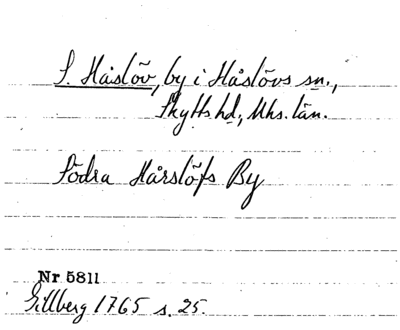 S. Håslöv, by i Håslövs sn.,
Skytts hd, Mhs. län.
Södra Hårslöfs By
Nr 5811
Gillberg 1765 s. 25.